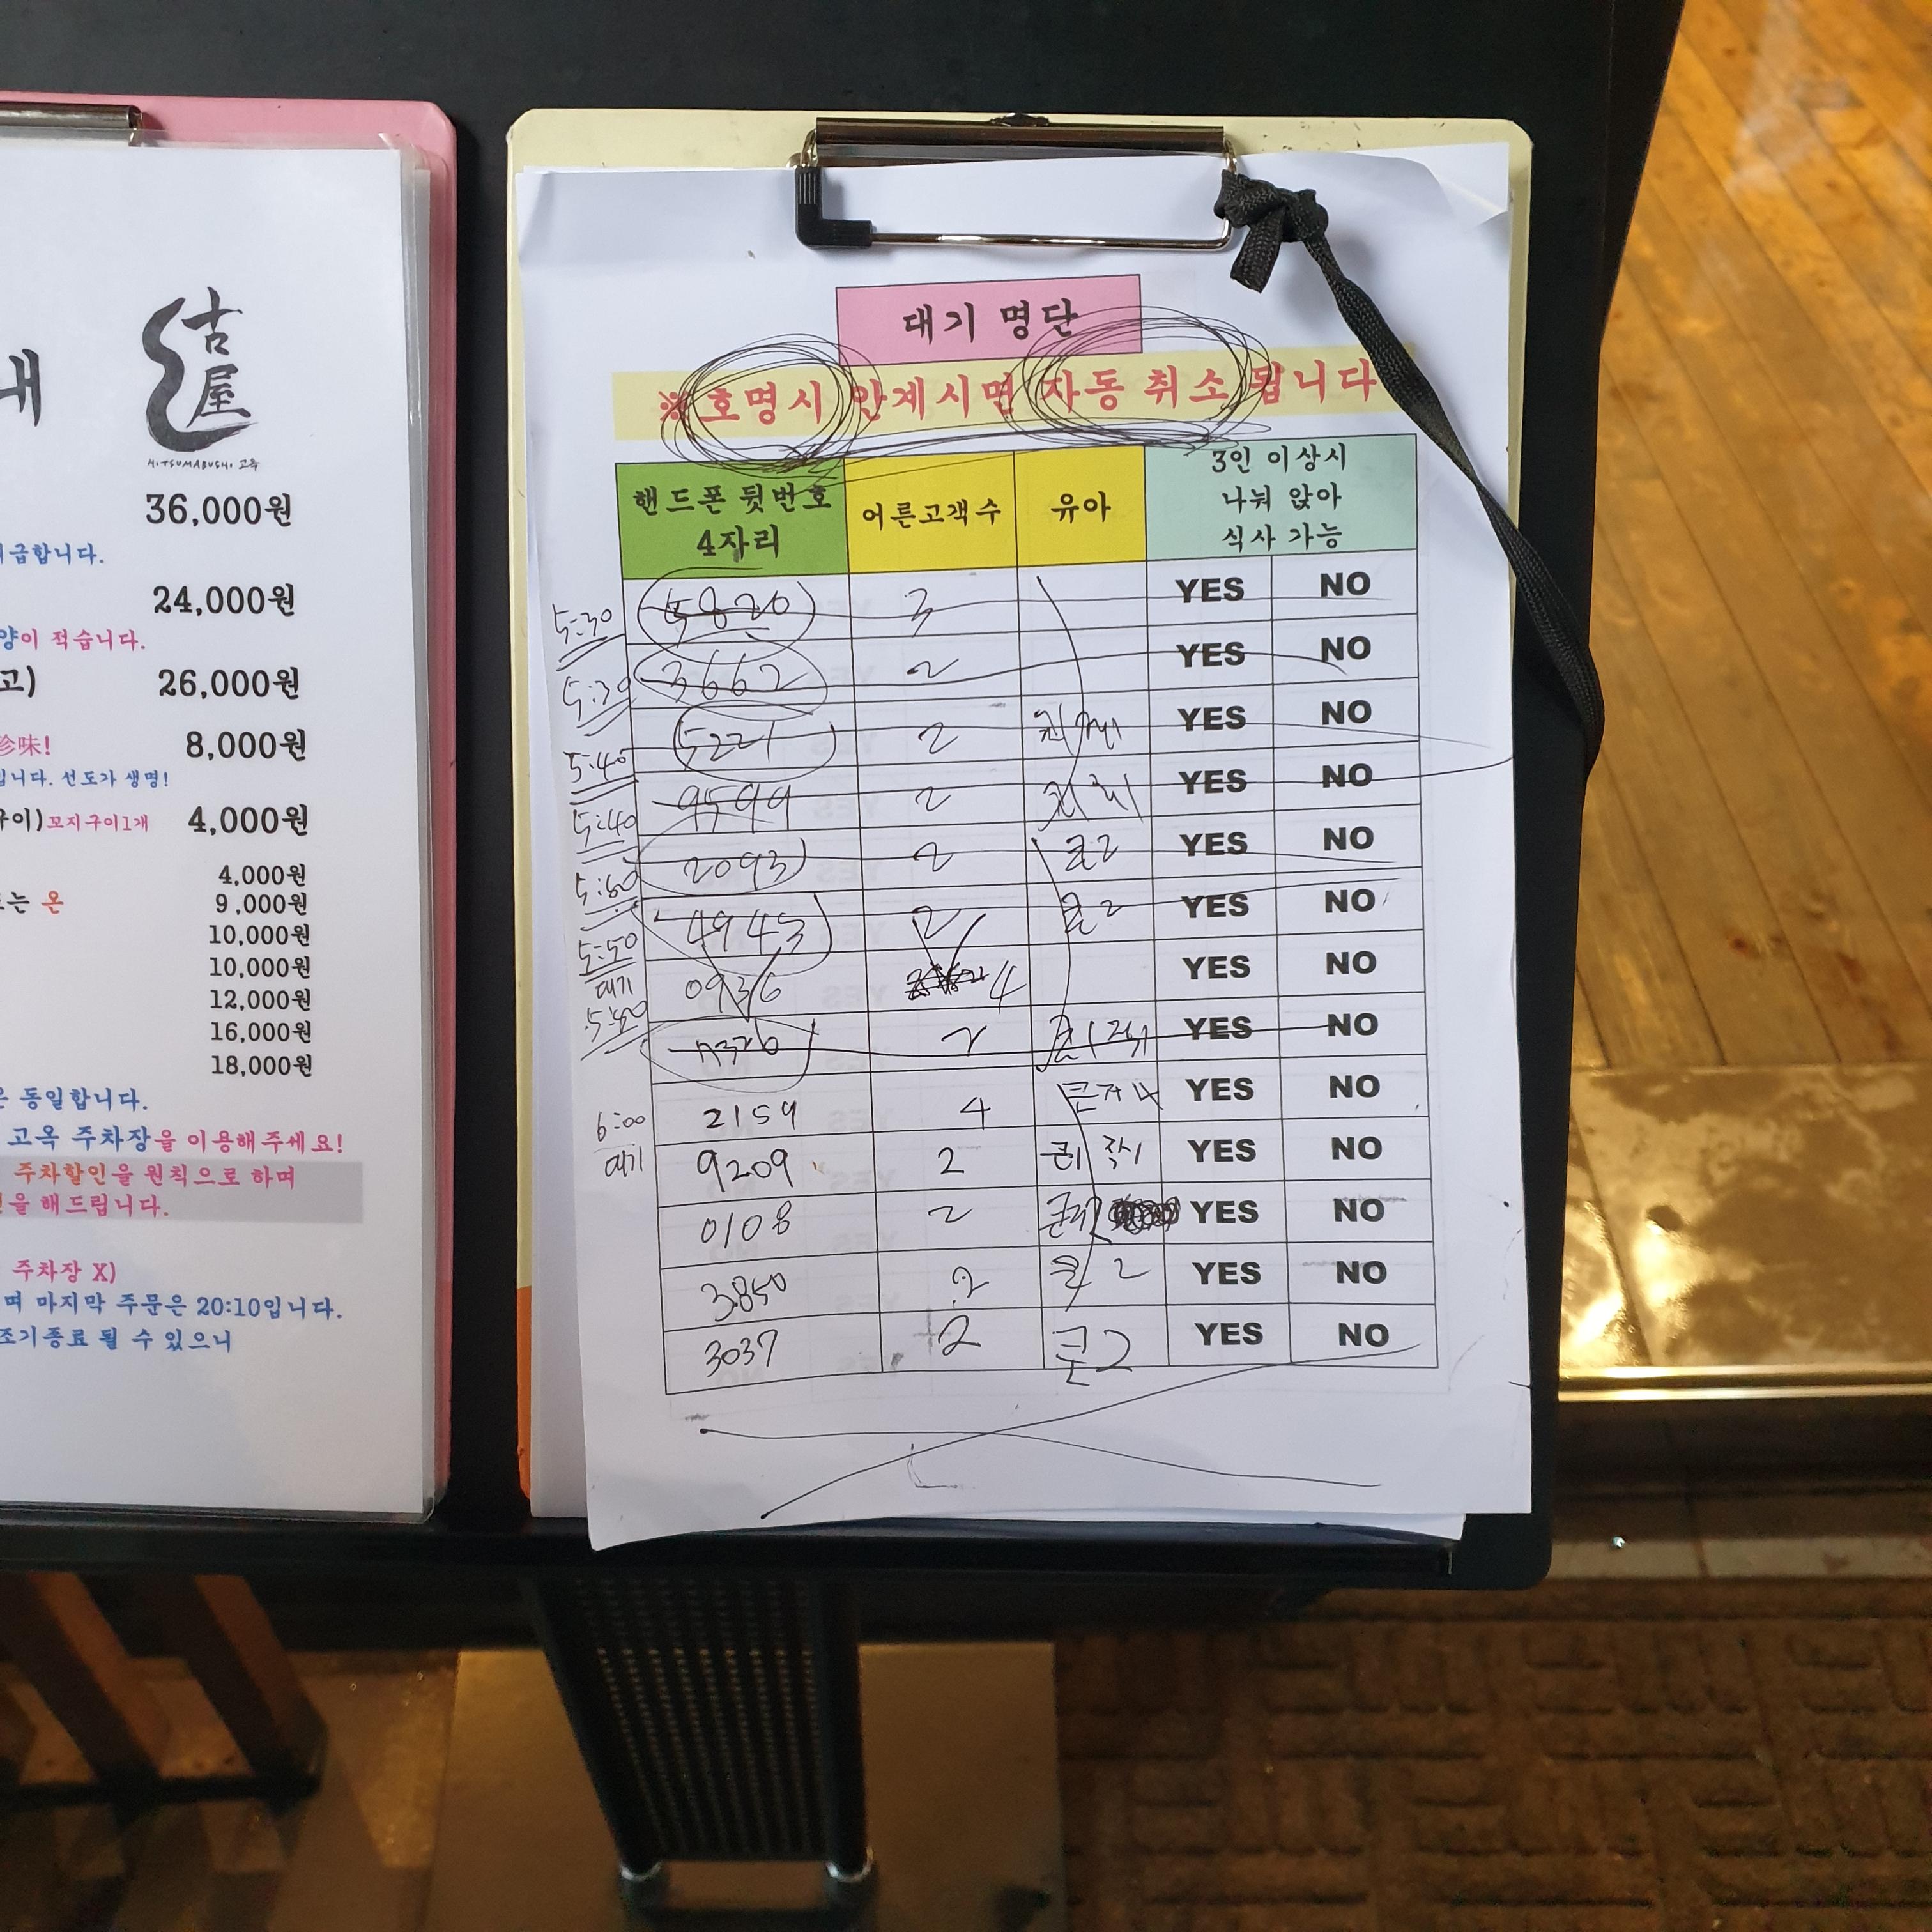 내
古屋
HITSUMABUSHI 고옥
36,000원
급합니다.
24,000원
양이 적습니다.
고)
26,000원
珍味!
8,000원
입니다. 선도가 생명!
구이)꼬지구이1개
4,000원
4,000원
는 온
9,000원
10,000원
10,000원
12,000원
16,000원
18,000원
은 동일합니다.
고옥 주차장을 이용해주세요!
주차할인을 원칙으로 하며
을 해드립니다.
주차장 X)
며 마지막 주문은 20:10입니다.
조기종료 될 수 있으니
대기 명단
※호명시 안계시면 자동 취소 됩니다
핸드폰 뒷번호
4자리
어른고객수
유아
3인 이상시
나눠 앉아
식사 가능
5:30 5820 3 YES NO
5:30 3662 2 YES NO
5:40 5221 2 YES NO
5:40 9599 2 YES NO
2093 2 큰2 YES NO
5:50 4943 2 큰2 YES NO
대기 0936 4 YES NO
2 YES NO
6:00 2159 4 YES NO
대기 9209 2 큰1 작1 YES NO
0108 2 YES NO
3850 2 큰2 YES NO
3037 2 큰2 YES NO